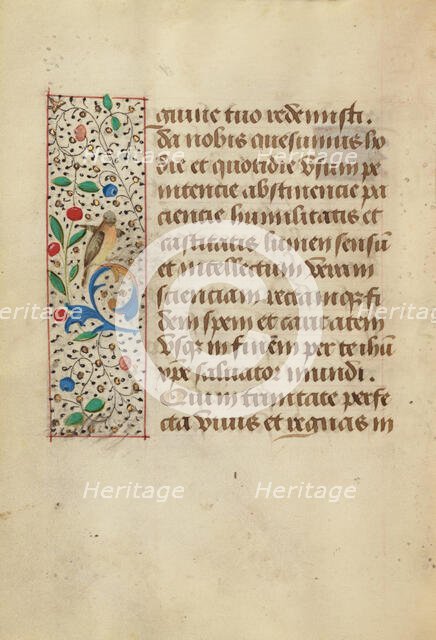 guine tuo redemisti.
da nobis quesumus ho
die et quotidie usum pe
nitencie abstinencie pa
ciencie humilitatis et
castitatis lumen sensu͞
et intellectum veram
scienciam rectamq͛ fi
dem spem et caritatem
Usq͛ in finem per te ihu͞
xp͞e saluator mundi.
Qui in trinitate perfe
cta vivis et regnas in
Heritage Heritage
Heritage Heritage Heritage
Heritage Heritage
Heritage Heritage